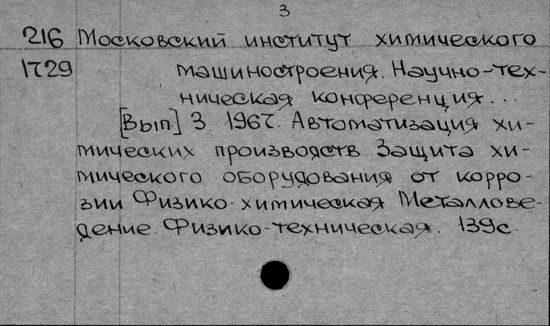 3
216 Московский институт химического
1729 машиностроения. Научно-тех-
ническая конференция...
[Вып] 3. 1967. Автоматизация хи-
мических производств. Защита хи-
мического оборудования от корро-
зии Физико-химическая Металлове-
дение. Физико-техническая. 139с.